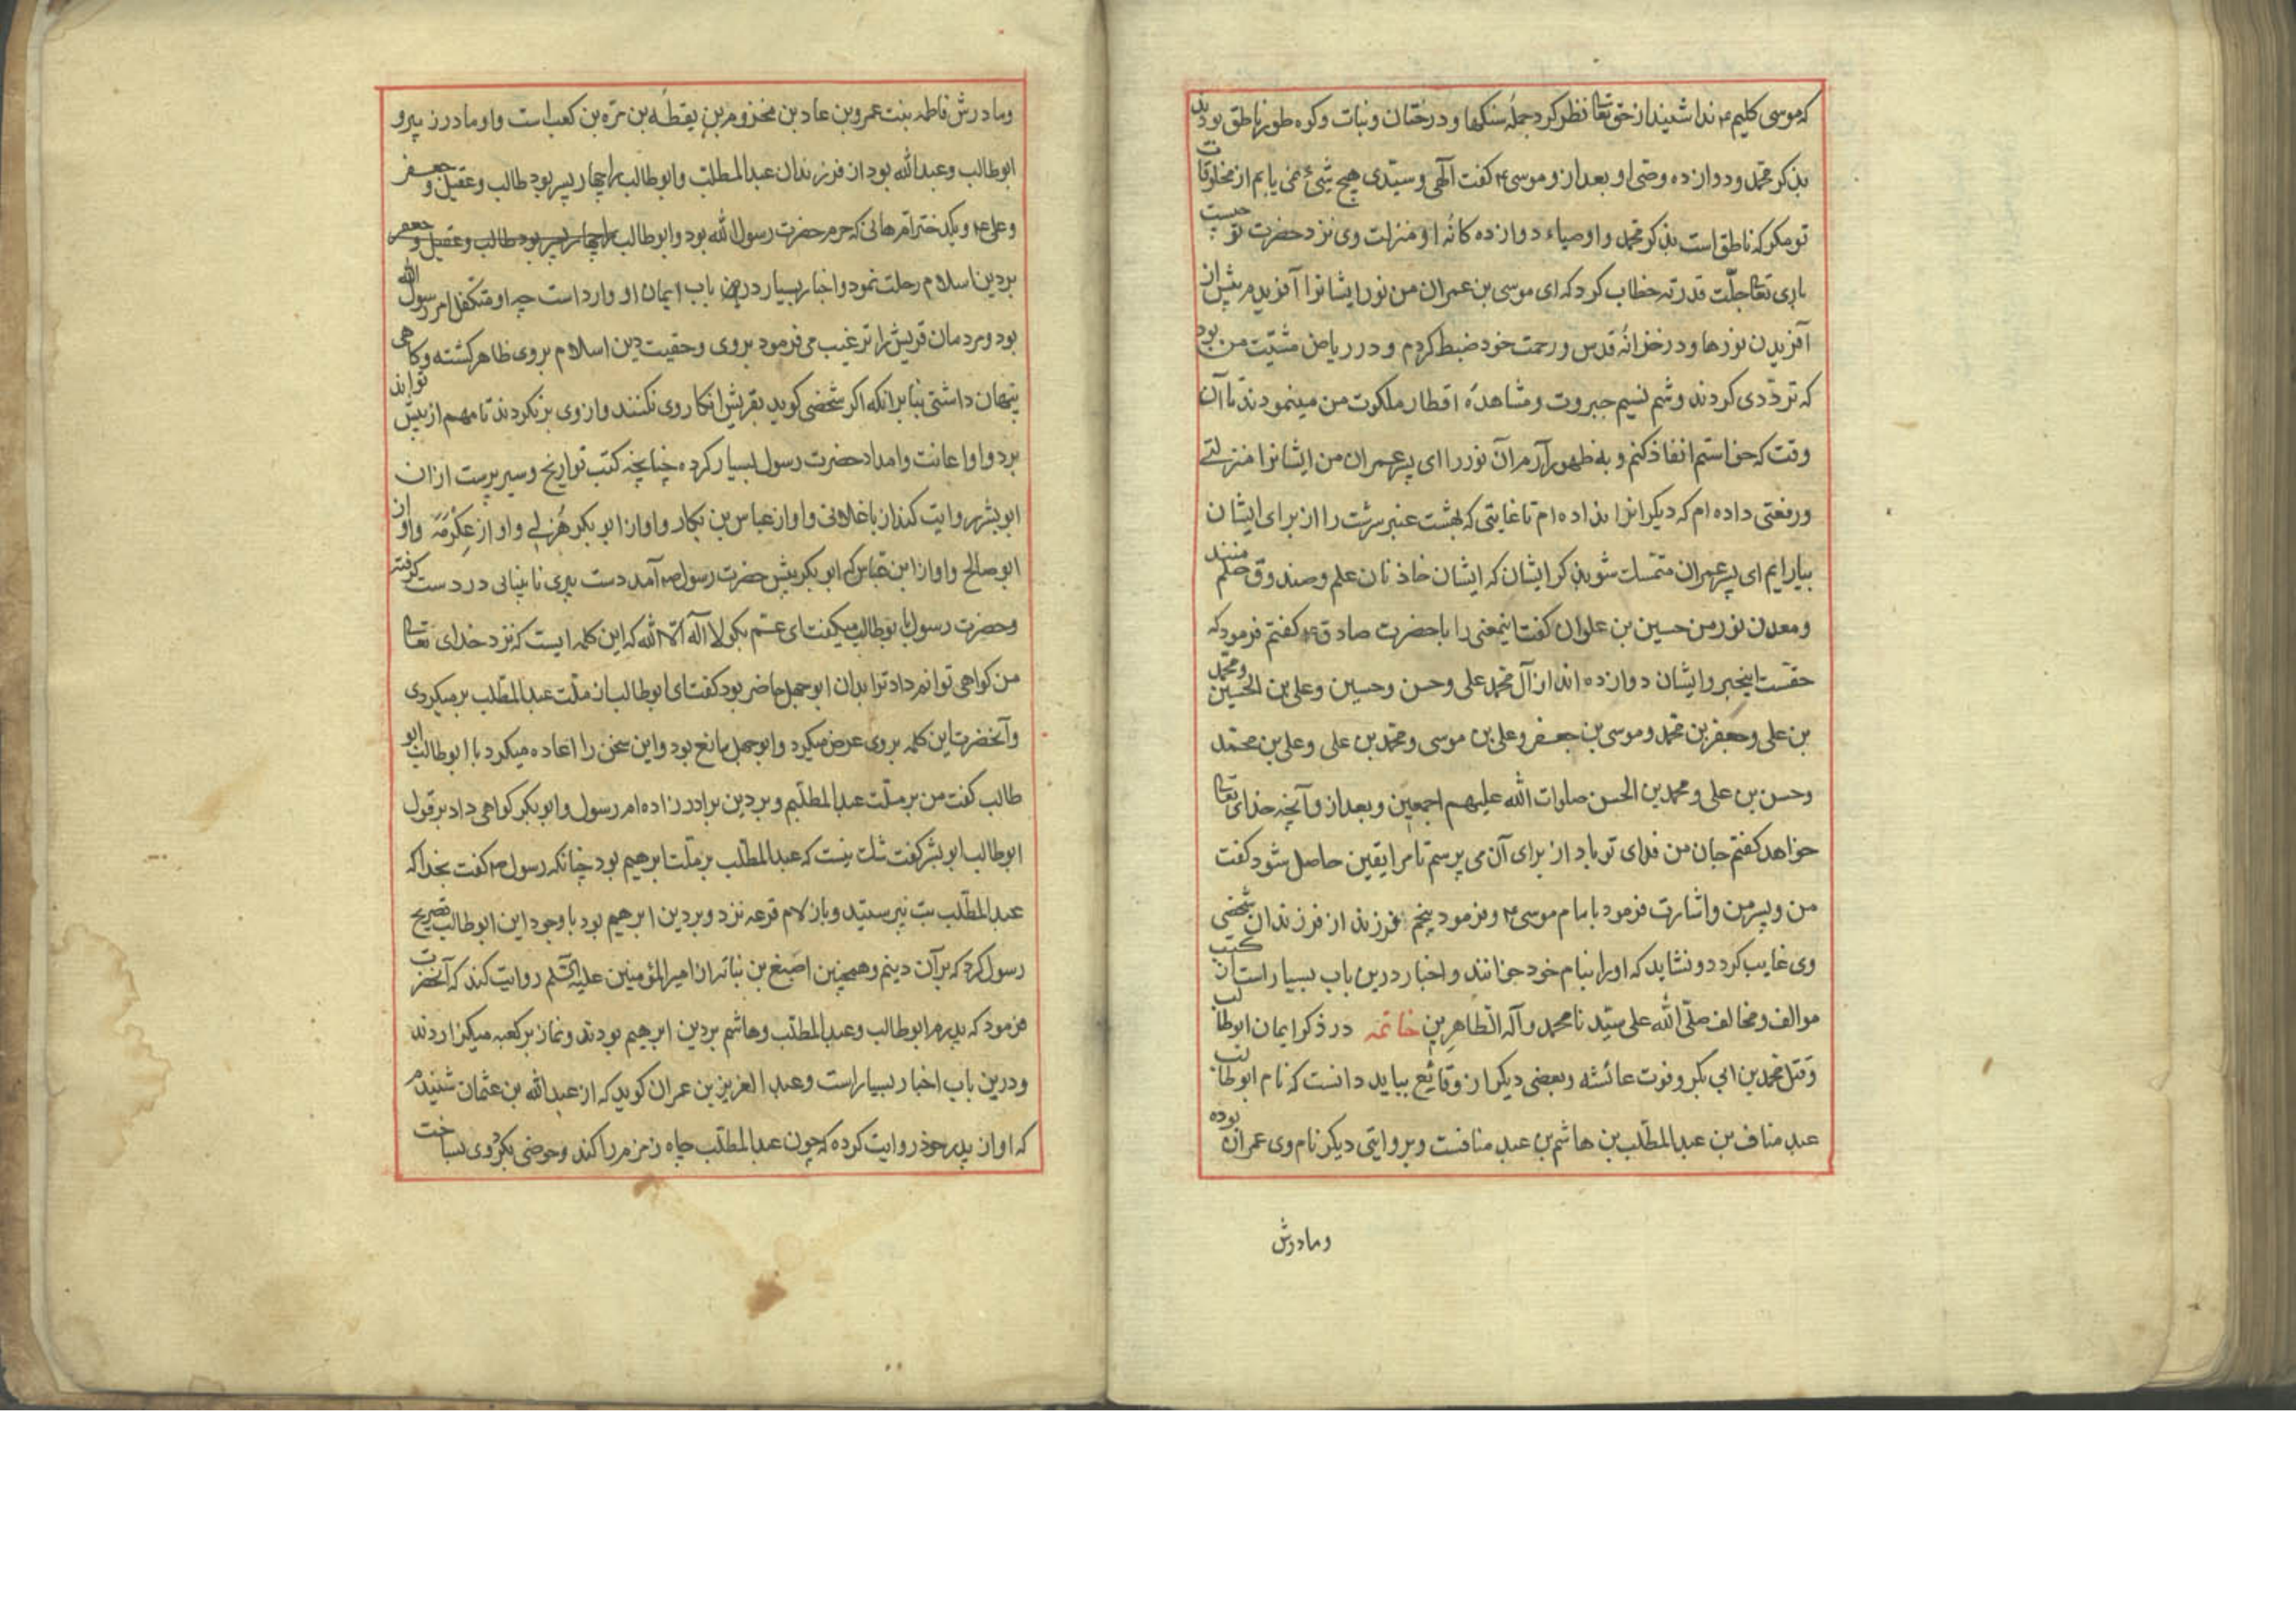 که موسی کلیم ۴ ندا شنید از حق تعا نظر کرد جملهٔ سنکها و درختان و نبات و کوه طور ناطق بودند
بذکر محمد و دوازده وصی او بعد از و موسی ۴ کفت آلهی و سیدی هیچ شیئ نمی یابم از مخلوقات
تو مکر که ناطق است بذکر محمد و اوصیاء دوازده کانهٔ او منزلت وی نزد حضرت تو چیست
باری تعا جلّت قدرته خطاب کرد که ای موسی بن عمران من نور ایشانرا آفریدم پیش از
آفریدن نورها و در خزانهٔ قدس و رحمت خود ضبط کردم و در ریاض مشیّت من بود
که تردّدی کردند و شم نسیم جبروت و مشاهدهٔ اقطار ملکوت من مینمودند تا آن
وقت که خواستم انفاذ کنم و به ظهور آرم آن نور را ای پسر عمران من ایشانرا منزلتے
و رفعتی داده ام که دیکرانرا نداده ام تا غایتی که بهشت عنبر سرشت را از برای ایشان
بیارایم ای پسر عمران متمسک شو بذکر ایشان که ایشان خاذنان علم و صندوق حلم منند
و معدن نور من حسین بن علوان کفت اینمعنی را با حضرت صادق ۴ کفتم فرمود که
حقست اینخبر و ایشان دوازده اند از آل محمد علی و حسن و حسین و علی بن الحسین و محمّد
بن علی و جعفر بن محمد و موسی بن جعفر و علی بن موسی و محمد بن علی و علی بن محمّد
و حسن بن علی و محمد بن الحسن صلوات الله علیهم اجمعین و بعد از و آنچه خدای تعا
خواهد کفتم جان من فدای تو باد از برای آن می پرسم تا مرا یقین حاصل شود کفت
من و پسر من و اشارت فرمود بامام موسی ۴ و فرمود پنجم فرزند از فرزندان شخصی
وی غایب کردد و نشاید که او را بنام خود خوانند و اخبار درین باب بسیار است از کتب
موالف و مخالف صلّی الله علی سیّدنا محمد و آله الطّاهرین خاتمه در ذکر ایمان ابوطالب
و قتل محمد بن ابی بکر و فوت عائشه و بعضی دیکر از وقائع بباید دانست که نام ابوطالب
عبد مناف بن عبدالمطّلب بن هاشم بن عبد منافست و بروایتی دیکر نام وی عمران بوده
و مادرش
و مادرش فاطمه بنت عمرو بن عاد بن مخزوم بن یقطه بن مرّه بن کعب است و او مادر زبیر و
ابوطالب و عبدالله بود از فرزندان عبدالمطلب و ابوطالب را چهار پسر بود طالب و عقیل و جعفر
و علی ۴ و یکدختر امّ هانی که حرم حضرت رسول الله بود و ابوطالب را چهار پسر بود طالب و عقیل و جعفر
بر دین اسلام رحلت نمود و اخبار بسیار درین باب ایمان او وارد است چه او متکفل امر رسول الله
بود و مردمان قریش را ترغیب می فرمود بروی و حقیت دین اسلام بروی ظاهر کشته و کاهی
پنهان داشتی بنابر انکه اکر شخصی کوید بقریش انکار وی نکنند و از وی برنکردند تا مهم از پیش تواند
برد و او اعانت و امداد حضرت رسول بسیار کرده چنانچه کتب تواریخ و سیر پرست از ان
ابوبشر روایت کند از باغلانی و او از عباس بن بکار و او از ابوبکر هُزلے و او از عکرمَه و او از
ابو صالح و او از ابن عباس که ابوبکر پیش حضرت رسول ص آمد دست پیری نابینائی در دست کرفته
و حضرت رسول با بوطالب میکفت ای عم بکو لا اله الا الله که این کلمه ایست که نزد خدای تعا
من کواهی توانم داد ترا بدان ابوجهل حاضر بود کفت ای ابوطالب از ملّت عبدالمطّلب برمیکردی
و آنحضرت این کلمه بروی عرض میکرد و ابوجهل مانع بود و این سخن را اعاده میکرد با ابوطالب ابو
طالب کفت من بر ملّت عبدالمطلبم و بر دین برادرزاده ام رسول و ابوبکر کواهی داد بر قول
ابوطالب ابوبشر کفت شک نیست که عبدالمطّلب بر ملّت ابرهیم بود چنانکه رسول ص کفت بخدا که
عبدالمطّلب بت نپرستید و بازلام قرعه نزد و بر دین ابرهیم بود با وجود این ابوطالب تصریح
رسول کرد که بر آن دینم و همچنین اصبغ بن نباته از امیرالمؤمنین علیه السّلم روایت کند که آنحضرت
فرمود که پدرم ابوطالب و عبدالمطلب و هاشم بر دین ابرهیم بودند و نماز بر کعبه میکزاردند
و درین باب اخبار بسیار است و عبدالعزیز بن عمران کوید که از عبدالله بن عثمان شنیدم
که او از پدر خود روایت کرده که چون عبدالمطّلب چاه زمزم را کند و حوضی بکرد وی بساخت